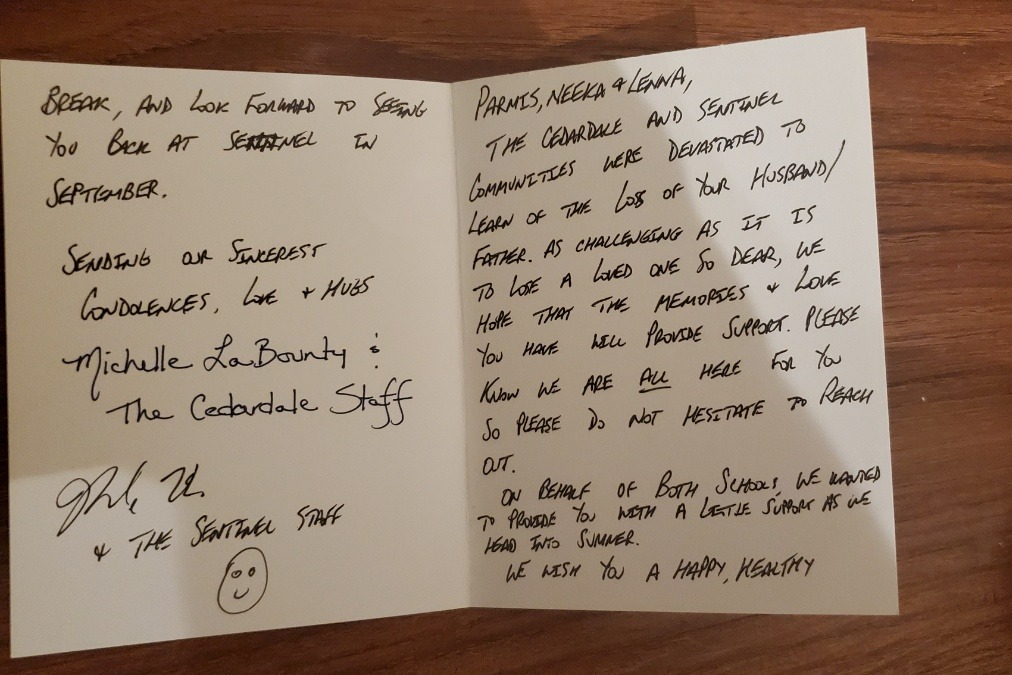 PARMIS, NEEKA & LENNA,
THE CEDARDALE AND SENTINEL
COMMUNITIES WERE DEVASTATED TO
LEARN OF THE LOSS OF YOUR HUSBAND/
FATHER. AS CHALLENGING AS IT IS
TO LOSE A LOVED ONE SO DEAR, WE
HOPE THAT THE MEMORIES & LOVE
YOU HAVE WILL PROVIDE SUPPORT. PLEASE
KNOW WE ARE ALL HERE FOR YOU
SO PLEASE DO NOT HESITATE TO REACH
OUT.
ON BEHALF OF BOTH SCHOOLS, WE WANTED
TO PROVIDE YOU WITH A LITTLE SUPPORT AS WE
HEAD INTO SUMMER.
WE WISH YOU A HAPPY, HEALTHY
BREAK, AND LOOK FORWARD TO SEEING
YOU BACK AT SENTINEL IN
SEPTEMBER.
SENDING OUR SINCEREST
CONDOLENCES, LOVE + HUGS
Michelle LaBounty &
The Cedardale Staff
& THE SENTINEL STAFF